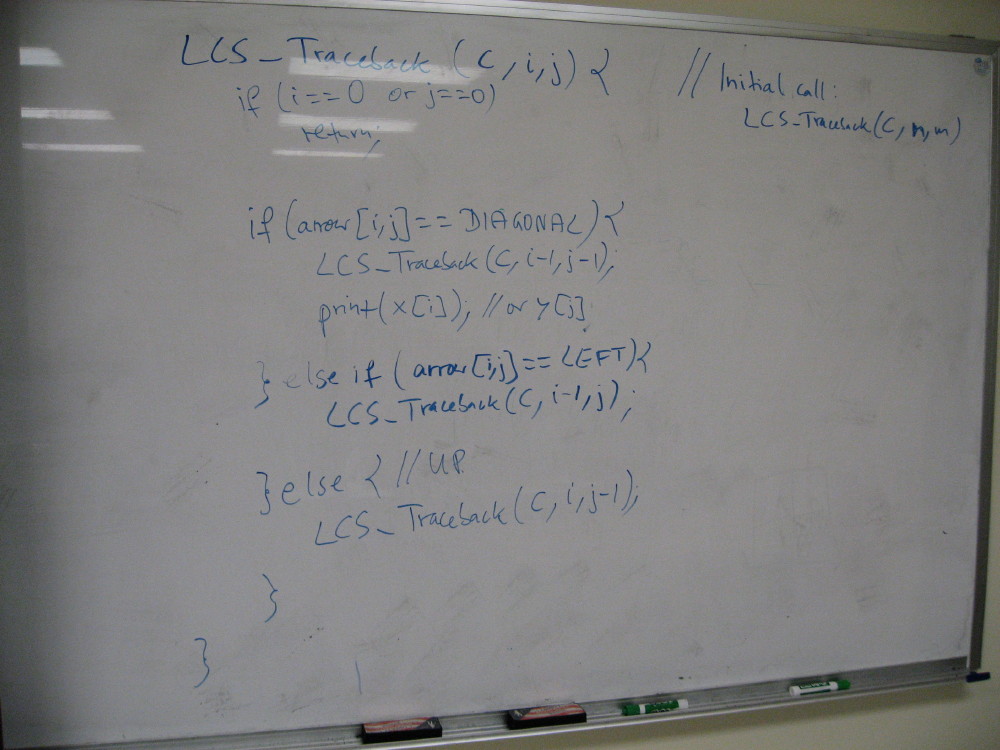 LCS_Traceback (C, i, j) {
// Initial call:
LCS_Traceback(C, n, m)
if (i==0 or j==0)
return;
if (arrow[i,j]== DIAGONAL) {
LCS_Traceback(C, i-1, j-1);
print(x[i]); // or y[j]
} else if (arrow[i,j]== LEFT) {
LCS_Traceback(C, i-1, j);
} else { // UP
LCS_Traceback(C, i, j-1);
}
}